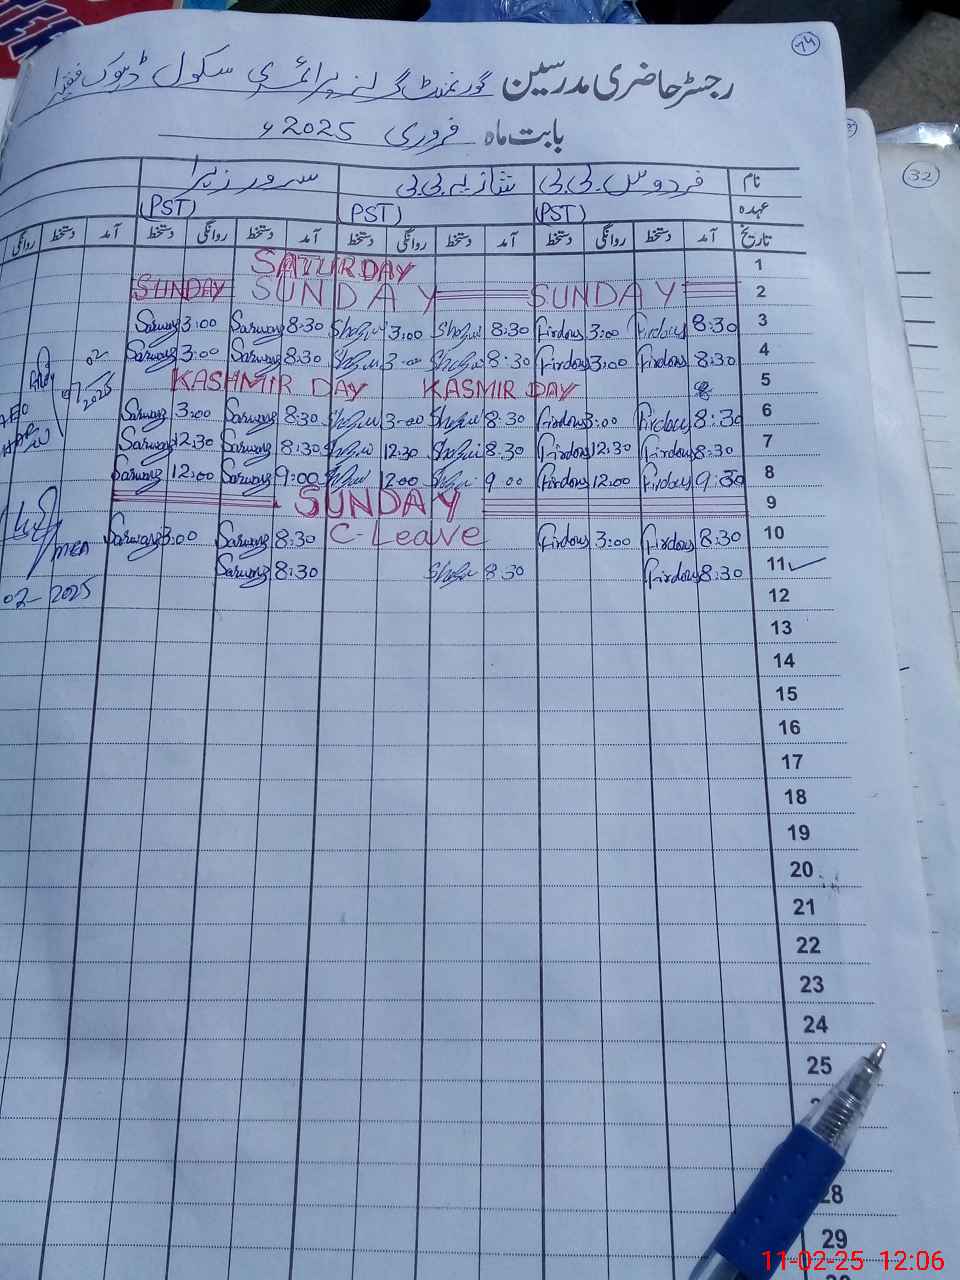 74
رجسٹر حاضری مدرسین گورنمنٹ گرلز پرائمری سکول ڈہوک فقیرا
بابت ماہ فروری 2025ء
نام فردوس بی بی شازیہ بی بی سرور زہرا
عہدہ (PST) (PST) (PST)
تاریخ آمد دستخط روانگی دستخط آمد دستخط روانگی دستخط آمد دستخط روانگی دستخط آمد دستخط روانگی
SATURDAY 1
SUNDAY SUNDAY SUNDAY 2
Sarwarz 3:00 Sarwarz 8:30 Shazia 3:00 Shazia 8:30 Firdous 3:00 Firdous 8:30 3
Sarwarz 3:00 Sarwarz 8:30 Shazia 3:00 Shazia 8:30 Firdous 3:00 Firdous 8:30 4
KASHMIR DAY KASMIR DAY 5
Sarwarz 3:00 Sarwarz 8:30 Shazia 3:00 Shazia 8:30 Firdous 3:00 Firdous 8:30 6
Sarwarz 12:30 Sarwarz 8:30 Shazia 12:30 Shazia 8:30 Firdous 12:30 Firdous 8:30 7
Sarwarz 12:00 Sarwarz 9:00 Shazia 12:00 Shazia 9:00 Firdous 12:00 Firdous 8
SUNDAY 9
Sarwarz 3:00 Sarwarz 8:30 C-Leave Firdous 3:00 Firdous 8:30 10
Sarwarz 8:30 Shazia 8:30 Firdous 8:30 11
12
13
14
15
16
17
18
19
20
21
22
23
24
25
28
29
02
07
2025
AEO
MEA
02-2025
32
11-02-25 12:06